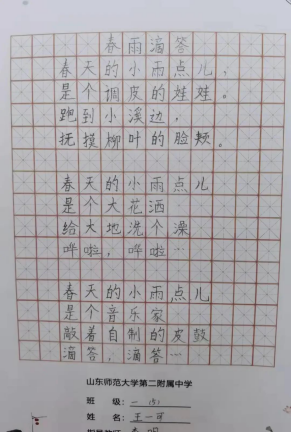 春雨滴答
春天的小雨点儿，
是个调皮的娃娃。
跑到小溪边，
抚摸柳叶的脸颊。
春天的小雨点儿
是个大花洒
给大地洗个澡
哗啦，哗啦
春天的小雨点儿
是个音乐家
敲着自制的皮鼓
滴答，滴答…
山东师范大学第二附属中学
班 级：一（5）
姓 名：王一可